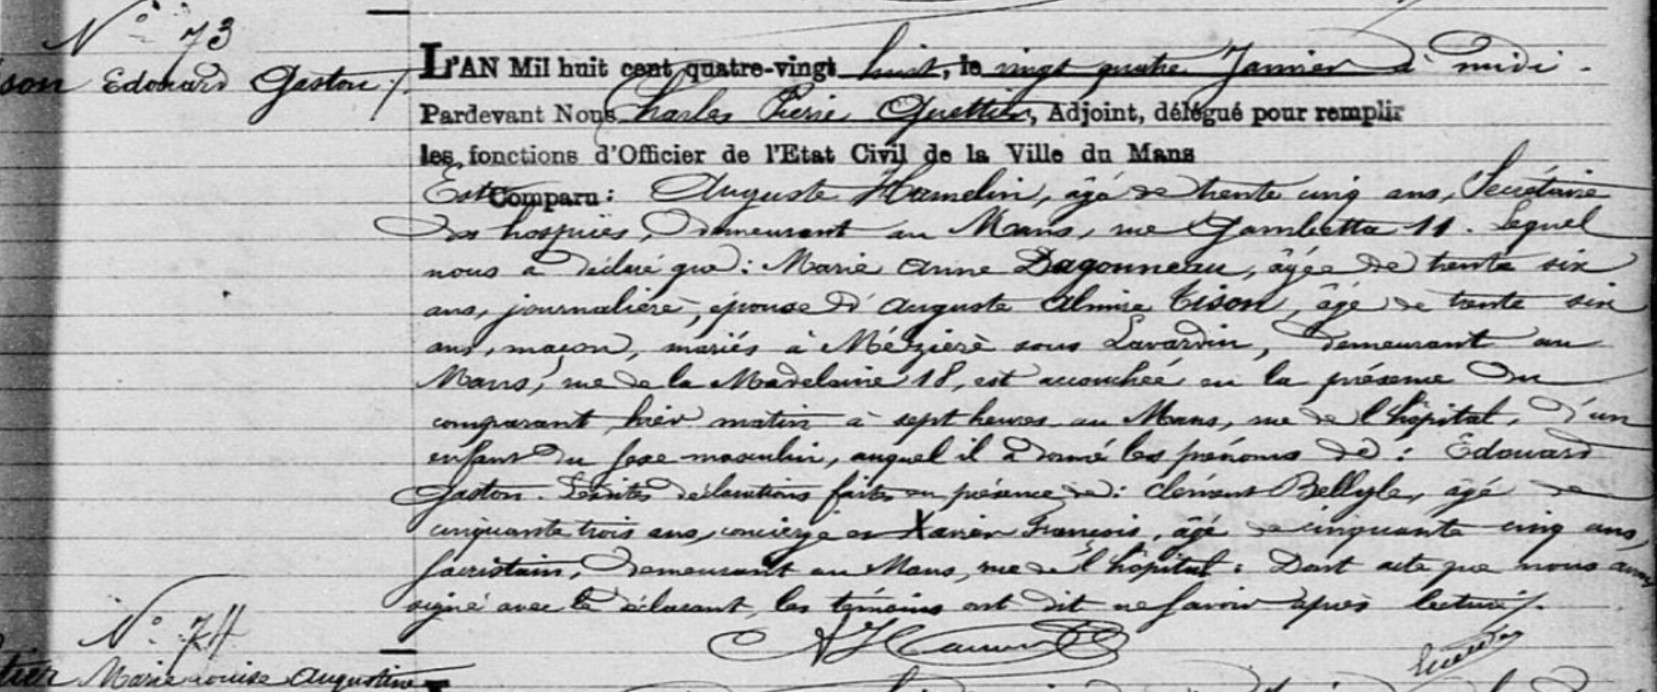 N° 73
son Edouard Gaston /.
L'AN Mil huit cent quatre-vingt huit, le vingt quatre Janvier à midi.
Pardevant Nous Charles Pierre Guettier, Adjoint, délégué pour remplir
les fonctions d'Officier de l'Etat Civil de la Ville du Mans
Est Comparu : Auguste Hamelin, âgé de trente cinq ans, Secrétaire
des hospices, demeurant au Mans, rue Gambetta 11. Lequel
nous a déclaré que : Marie Anne Dagonneau, âgée de trente six
ans, journalière, épouse d'Auguste Almire Tison, âgé de trente six
ans, maçon, mariés à Mézière sous Lavardin, demeurant au
Mans, rue de la Madeleine 18, est accouchée en la présence du
comparant hier matin à sept heures au Mans, rue de l'hôpital, d'un
enfant du sexe masculin, auquel il a donné les prénoms de : Edouard
Gaston. Lesdites déclarations faites en présence de : Clément Bellyle, âgé de
cinquante trois ans, concierge et Xavier François, âgé de cinquante cinq ans,
sacristain, demeurant au Mans, rue de l'hôpital : Dont acte que nous avons
signé avec le déclarant, les témoins ont dit ne savoir après lecture /.
N° 74
tier Marie Louise Augustine